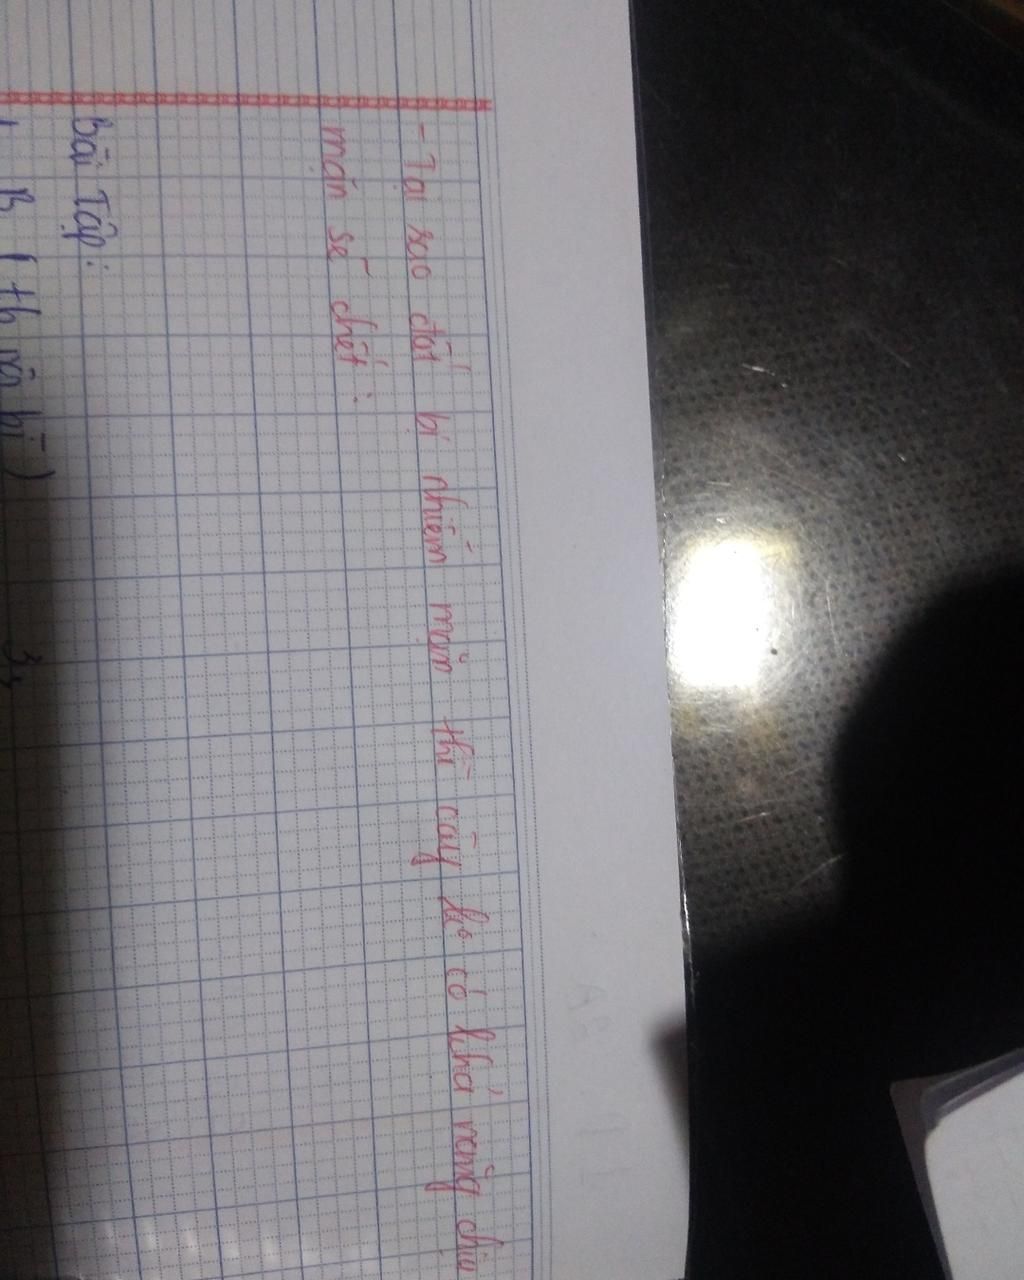 - Tại sao đất bị nhiễm mặn thì cây ko có khả năng chịu
mặn sẽ chết:
Bài Tập: